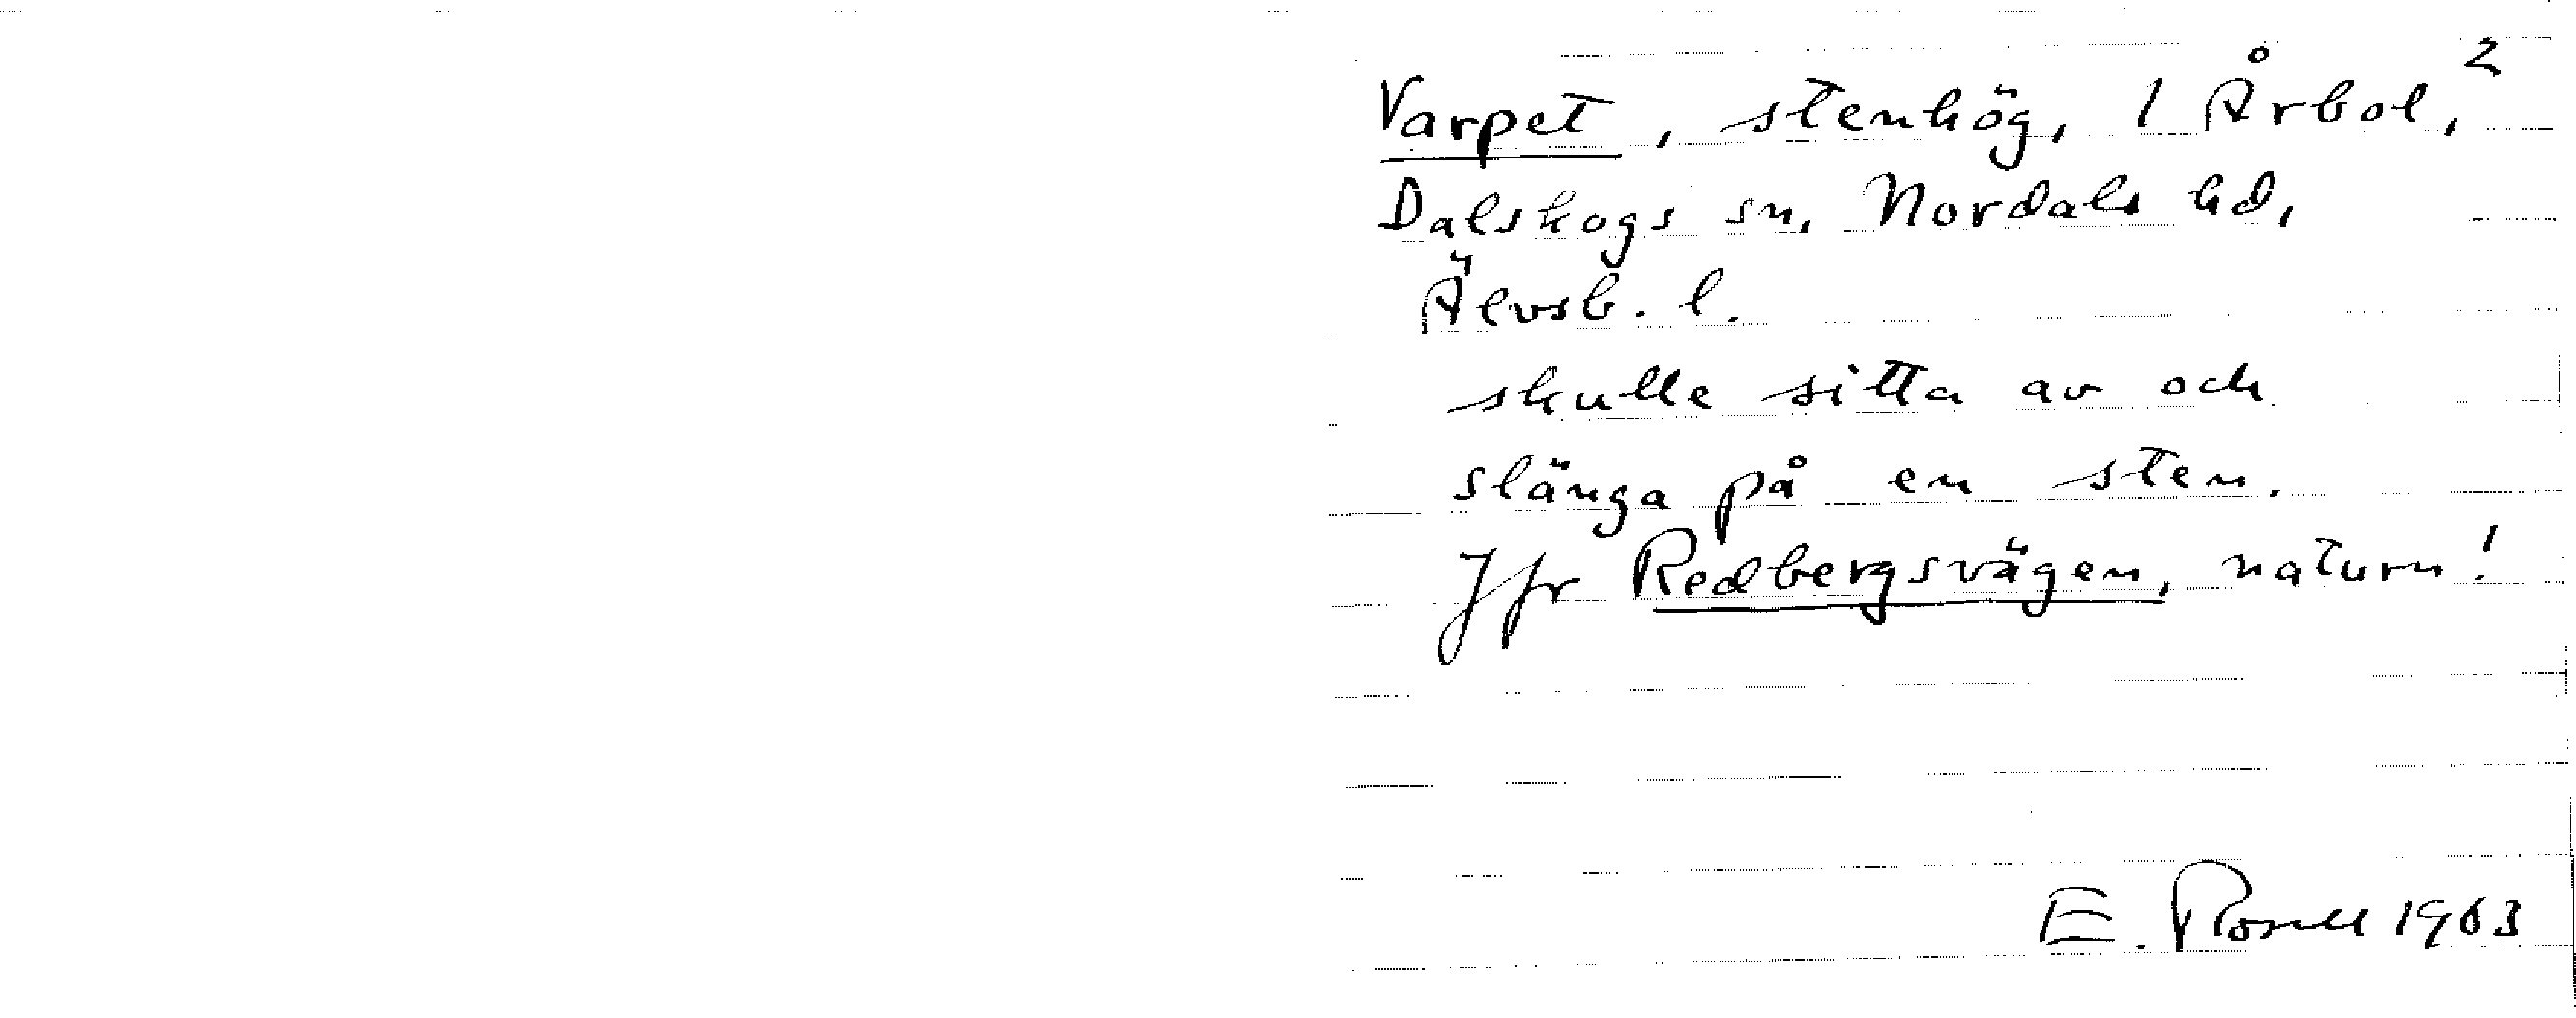 Varpet, stenhög, 1 Årbol, 2
Dalskogs sn, Nordals hd,
Älvsb. l.
skulle sitta av och
slänga på en sten.
Jfr Redbergsvägen, naturn!
E. Rosell 1963